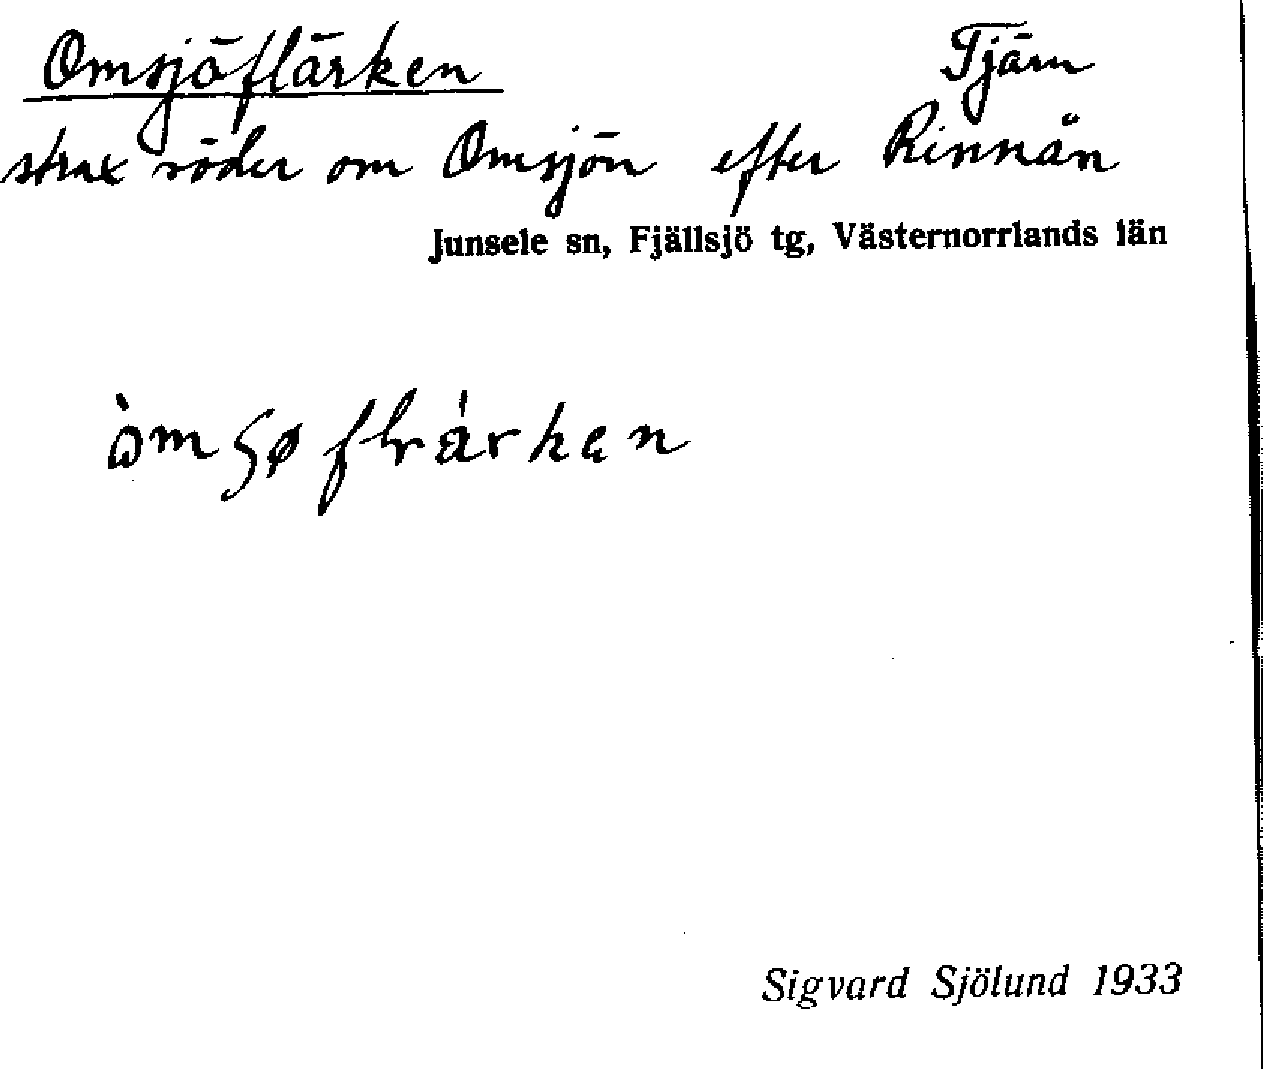 Omsjöflärken Tjärn
strax söder om Omsjön efter Rinnån
Junsele sn, Fjällsjö tg, Västernorrlands län
Sigvard Sjölund 1933